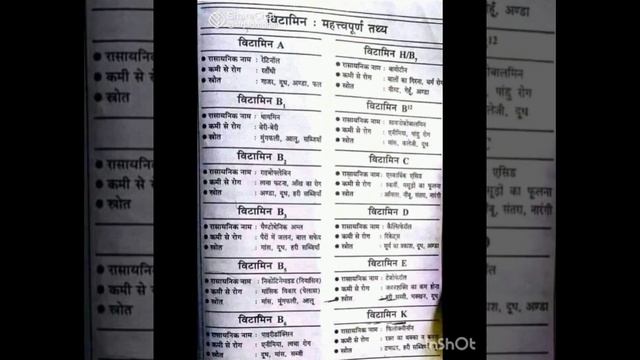 विटामिन : महत्त्वपूर्ण तथ्य
विटामिन A
• रासायनिक नाम : रेटिनॉल
• कमी से रोग : रतौंधी
• स्रोत : गाजर, दूध, अण्डा, फल
विटामिन B1
• रासायनिक नाम : थायमिन
• कमी से रोग : बेरी-बेरी
• स्रोत : मूंगफली, आलू, सब्जियाँ
विटामिन B2
• रासायनिक नाम : राइबोफ्लेविन
• कमी से रोग : त्वचा फटना, आँख का रोग
• स्रोत : अण्डा, दूध, हरी सब्जियाँ
विटामिन B3
• रासायनिक नाम : पैण्टोथेनिक अम्ल
• कमी से रोग : पैरों में जलन, बाल सफेद
• स्रोत : मांस, दूध, हरी सब्जियाँ
विटामिन B5
• रासायनिक नाम : निकोटिनेमाइड (नियासिन)
• कमी से रोग : मांसिक विकार (पेलाग्रा)
• स्रोत : मांस, मूंगफली, आलू
विटामिन B6
• रासायनिक नाम : पाइरीडॉक्सिन
• कमी से रोग : एनीमिया, त्वचा रोग
• स्रोत : दूध, मांस, सब्जी
विटामिन H/B7
• रासायनिक नाम : बायोटीन
• कमी से रोग : बालों का गिरना, चर्म रोग
• स्रोत : यीस्ट, गेहूँ, अण्डा
विटामिन B12
• रासायनिक नाम : सायनोकोबालमिन
• कमी से रोग : एनीमिया, पांडु रोग
• स्रोत : मांस, कलेजी, दूध
विटामिन C
• रासायनिक नाम : एस्कार्बिक एसिड
• कमी से रोग : स्कर्वी, मसूड़ों का फूलना
• स्रोत : आँवला, नींबू, संतरा, नारंगी
विटामिन D
• रासायनिक नाम : कैल्सिफेरॉल
• कमी से रोग : रिकेट्स
• स्रोत : सूर्य का प्रकाश, दूध, अण्डा
विटामिन E
• रासायनिक नाम : टेकोफेरॉल
• कमी से रोग : जननशक्ति का कम होना
• स्रोत : हरी सब्जी, मक्खन, दूध
विटामिन K
• रासायनिक नाम : फिलोक्वीनॉन
• कमी से रोग : रक्त का थक्का न
• स्रोत : टमाटर, हरी